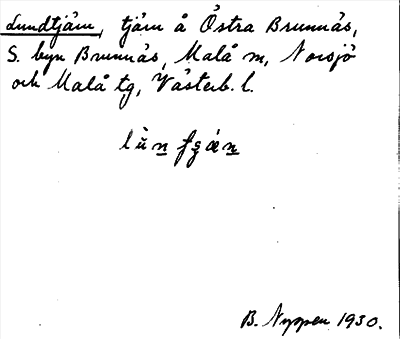 Lundtjärn, tjärn å Östra Brunnäs,
S. byn Brunnäs, Malå sn, Norsjö
och Malå tg, Västerb. l.
B. Nyspen 1930.